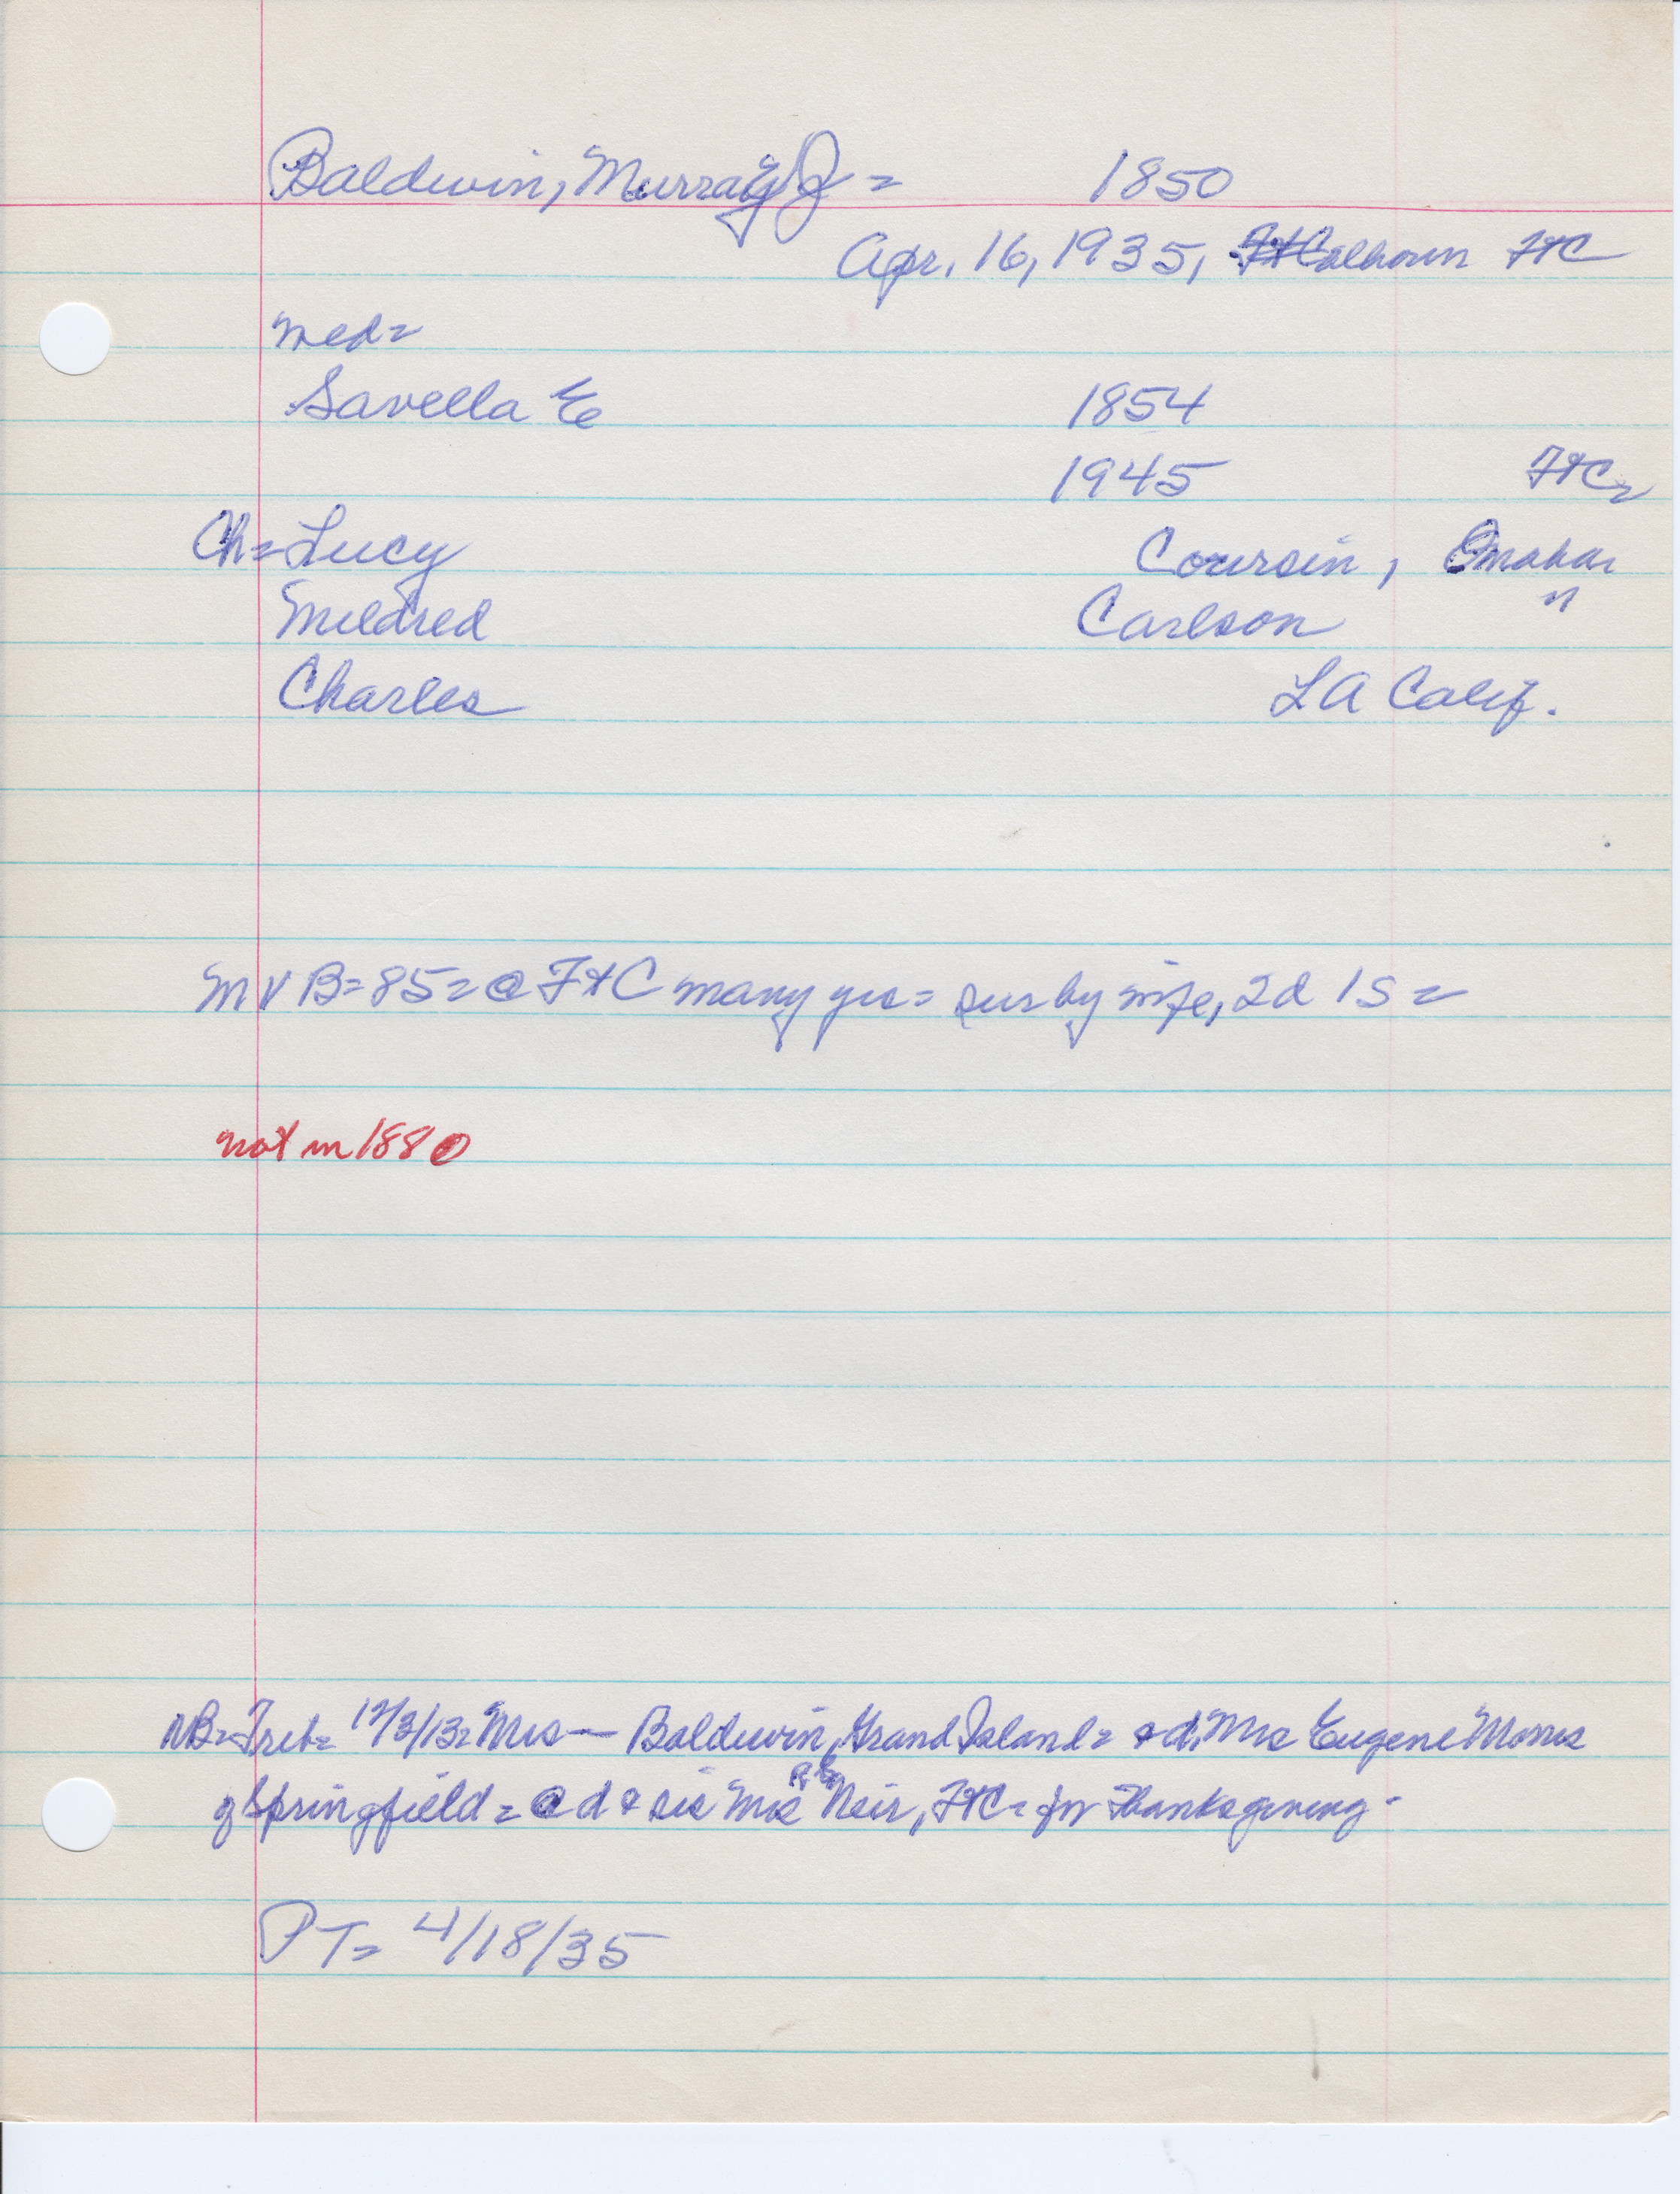 Baldwin, Murray J = 1850
Apr. 16, 1935, Ft Calhoun FtC
med=
Savella E 1854
1945 FtC=
Ch= Lucy Coursin, Omaha
Mildred Carlson "
Charles LA Calif.
M V B= 85= @ FtC many yrs= sur by wife, 2d 1S =
not in 1880
NB= Trib= 12/3/13= Mrs — Baldwin, Grand Island= & d. Mrs Eugene Morris
of Springfield = @ d & sis Mrs Neir, FtC= for Thanksgiving-
PT= 4/18/35